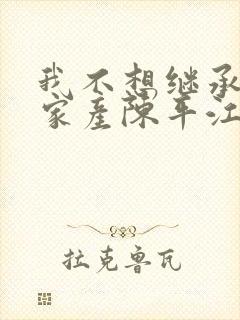 我不想继承
家产陈平江
拉克鲁瓦